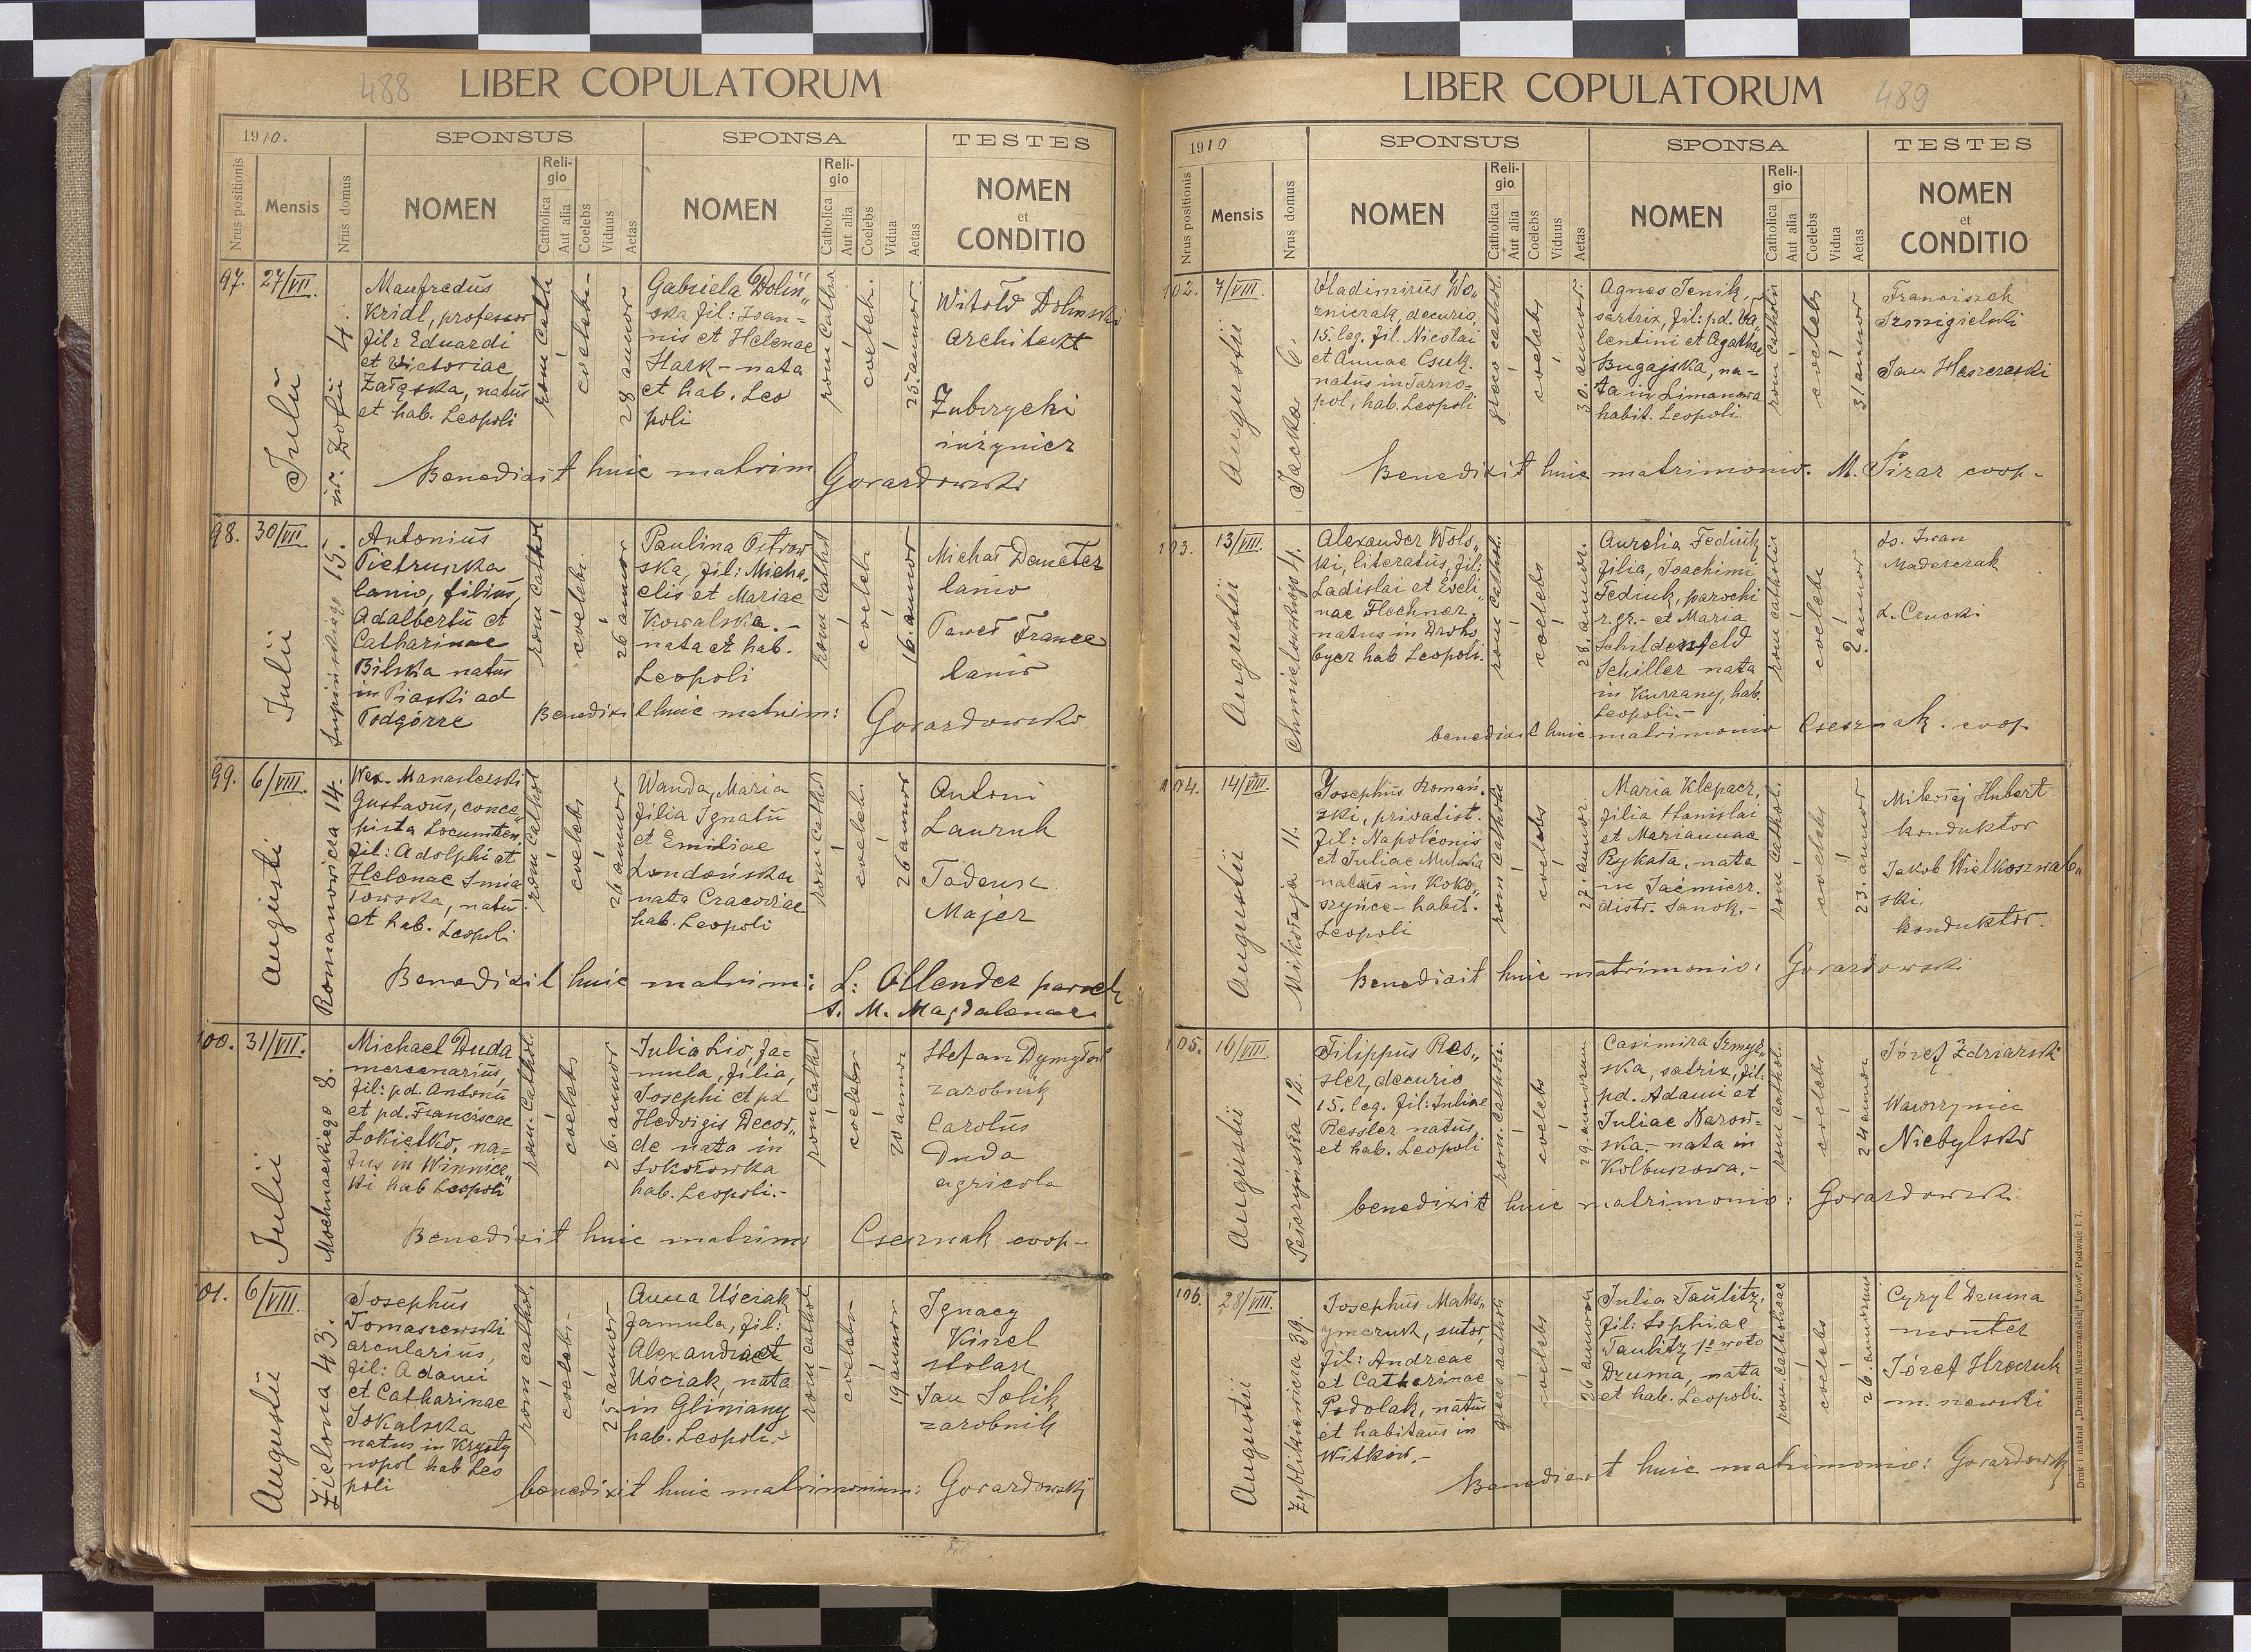 488
LIBER COPULATORUM
1910.
SPONSUS
SPONSA
TESTES
Nrus positionis
Mensis
Nrus domus
NOMEN
Religio
Catholica
Aut alia
Coelebs
Viduus
Aetas
NOMEN
Religio
Catholica
Aut alia
Coelebs
Vidua
Aetas
NOMEN
et
CONDITIO
97.
27/VII.
Julii
św. Zofii 4.
Manfredus
Kridl, professor
fil: Eduardi
et Victoriae
Załęska, natus
et hab. Leopoli
rom cath
coelebs
28 annor
Gabriela Doliń„
ska fil: Joan=
nis et Helenae
Hark - nata
et hab. Leo
poli
rom cathol
coeleb.
25. annor.
Witold Dolinski
Architekt
Zubrzycki
inżynier
Benedixit huic matrim Gorazdowski
98.
30/VII
Julii
Supińskiego 15.
Antonius
Pietruszka
lanio, filius,
Adalberti et
Catharinae
Bilska natus
in Piaski ad
Podgórze
rom cathol
coelebs.
26 annor
Paulina Ostrow
ska, fil: Micha„
elis et Mariae
Kowalska. -
nata et hab.
Leopoli
rom cathol
coelebs
16. annor
Michał Demeter
lanio
Paweł France
lanio
Benedixit huic matrim: Gorazdowski
99.
6/VIII.
Augusti
Romanowicza 14.
Manasterski
Gustavus, conce„
pista Locumten,
fil: Adolphi et
Helenae Smia
łowska, natus
et hab. Leopoli
rom cathol
coelebs
26 annor
Wanda, Maria
filia Ignatii
et Emiliae
Londońska
nata Cracoviae
hab. Leopoli
rom cathol
coelebs
26 annor
Antoni
Lauruk
Tadeusz
Majer
Benedixit huic matrim: L: Ollender paroch
S. M. Magdalenae
100.
31/VII.
Julii
Mochnackiego 8.
Michael Duda
mercenarius,
fil: pd. Antonii
et pd. Franciscae
Łokietko, na=
tus in Winnicz„
ki hab Leopoli
rom. cathol.
coelebs
26. annor
Julia Lis, fa=
mula, filia,
Josephi et pd
Hedvigis Decor„
de nata in
Sokołowka
hab. Leopoli.-
rom cathol
coelebs
20 annor
Stefan
zarobnik
Carolus
Duda
agricola
Benedixit huic matrim: Csesznak coop-
101.
6/VIII.
Augustii
Zielona 43.
Josephus
Tomaszewski
arcularius,
fil: Adami
et Catharinae
Sokalska
natus in Krysty
nopol hab Leo
poli
rom cathol.
coelebs-
25 annor
Anna Uściak
famula, fil:
Alexandri et
Uściak, nata
in Gliniany
hab. Leopoli.-
rom cathol
coelebs
19 annor
Ignacy
Kisiel
stolarz
Jan Solik
zarobnik
benedixit huic matrimonium: Gorazdowski
489
LIBER COPULATORUM
1910
SPONSUS
SPONSA
TESTES
Nrus positionis
Mensis
Nrus domus
NOMEN
Religio
Catholica
Aut alia
Coelebs
Viduus
Aetas
NOMEN
Religio
Catholica
Aut alia
Coelebs
Vidua
Aetas
NOMEN
et
CONDITIO
102.
7/VIII.
Augustii
Jacka 6.
Vladimirus Wo„
zniczak, decurio
15. leg. fil. Nicolai
et Annae Csuk.
natus in Tarno=
pol, hab. Leopoli
graeco cathol.
coelebs
30. annor.
Agnes Jenik,
sartrix, fil: pd. Va„
lentini et Agathae
Bugajska, na=
ta in Limanowa
habit. Leopoli.
rom catholic
coelebs
31 annor
Franciszek
Szmigielski
Jan
Benedixit huic matrimonio. M. coop-
103.
13/VIII.
Augustii
Chmielowskiego 4.
Alexander Wols„
ki, literatus, fil:
Ladislai et Eveli„
nae Flechner,
natus in Droho„
bycz hab Leopoli.
rom cathol.
coelebs
28. annor.
Aurelia Fediuk
filia, Joachimi
Fediuk, parochi
r. gr. - et Maria
Schildenfeld
Schiller nata
in Kurzany, hab.
Leopoli.-
rom catholic
coelebs
2. annor
ks. Iwan
Maderczak
benedixit huic matrimonio Csesznak. coop.
104.
14/VIII.
Augustii
Mikołaja 11.
Josephus Romań„
ski, privatist.
fil: Napoleonis
et Juliae
natus in Koko„
szyńce - habit.
Leopoli
rom cathol
coelebs
27. annor.
Maria Klepacz,
filia Stanislai
et Mariannae
Rykała. nata
in Jaćmierz.
distr. Sanok.-
rom cathol.
coelebs
23. annor
Mikołaj Hubert.
konduktor
Jakob Wielkoszwab„
ski,
konduktor.
Benedixit huic matrimonio: Gorazdowski
105.
16/VIII.
Augustii
12.
Filippus Res„
sler, decurio
15. leg. fil: Juliae
Ressler natus,
et hab. Leopoli
rom. cathol.
coelebs
29 annorum
Casimira
ska, satrix, fil:
pd. Adami et
Juliae Narow=
ska.- nata in
Kolbuszowa.-
rom cathol.
coelebs
24 annor
Józef Zdziarski
Wawrzyniec
Niebylski
benedixit huic matrimonio: Gorazdowski
106.
28/VIII.
Augustii
Zyblikiewicza 39.
Josephus Maks„
ymczuk, sutor,
fil: Andreae
et Catharinae
Podolak, natus
et habitans in
Witków.-
graec cathol
coelebs
26 annor
Julia Taulitz,
fil: Sophiae
Taulitz 1º voto
Druma, nata
et hab. Leopoli.
rom. catholicae
coelebs
26. annorum
Cyryl Druma
monter
Józef
Benedixit huic matrimonio: Gorazdowski
Druk i nakład „Drukarni Mieszczańskiej" Lwów, Podwale l. 7.